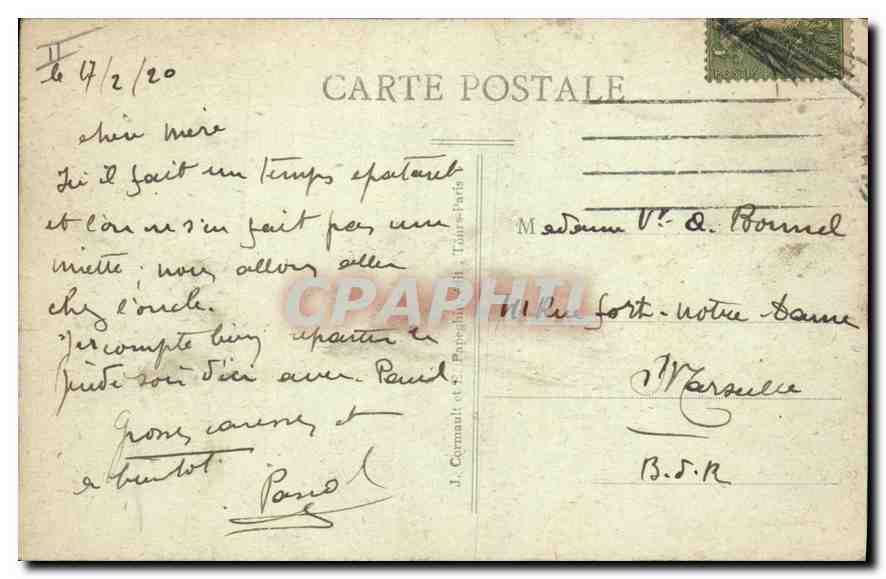 le 17/2/20
chère mère
Ici il fait un temps epatant
et l'on ne s'en fait pas une
miette; nous allons aller
chez l'oncle.
compte bien repartir le
soir d'ici avec
Grosses caresses et
a bientot.
CARTE POSTALE
J. Cormault et E. Papeghin, Edit - Tours-Paris
Madame Vve A. Bonnel
Rue fort-notre Dame
Marseille
B.d.R
CPAPHIL